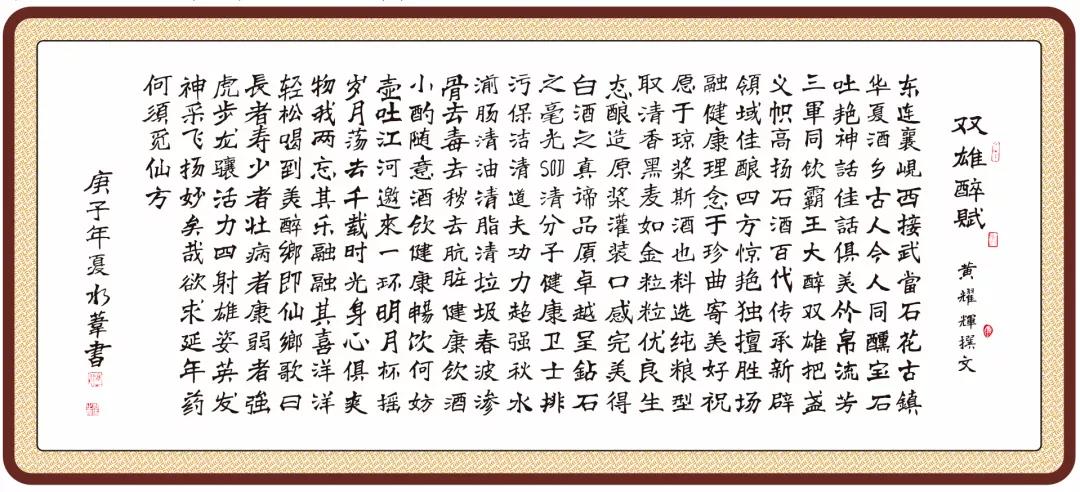 双雄醉赋
黄耀輝撰文
东连襄峴西接武當石花古鎮
华夏酒乡古人今人同醺宝石
吐艳神話佳話俱美竹帛流芳
三軍同饮霸王大醉双雄把盏
义帜高扬石酒百代传承新辟
領域佳酿四方惊艳独擅胜场
融健康理念于珍曲寄美好祝
愿于琼浆斯酒也料选纯粮型
取清香黑麦如金粒粒优良生
态酿造原浆灌装口感完美得
白酒之真谛品质卓越呈鉆石
之毫光SOD清分子健康卫士排
污保洁清道夫功力超强秋水
湔肠清油清脂清垃圾春波渗
骨去毒去秽去肮脏健康饮酒
小酌随意酒饮健康暢饮何妨
壶吐江河邀來一环明月杯摇
岁月荡去千载时光身心俱爽
物我两忘其乐融融其喜洋洋
轻松喝到美醉鄉即仙鄉歌曰
長者寿少者壮病者康弱者強
虎步龙骧活力四射雄姿英发
神采飞扬妙矣哉欲求延年药
何須觅仙方
庚子年夏水葦書